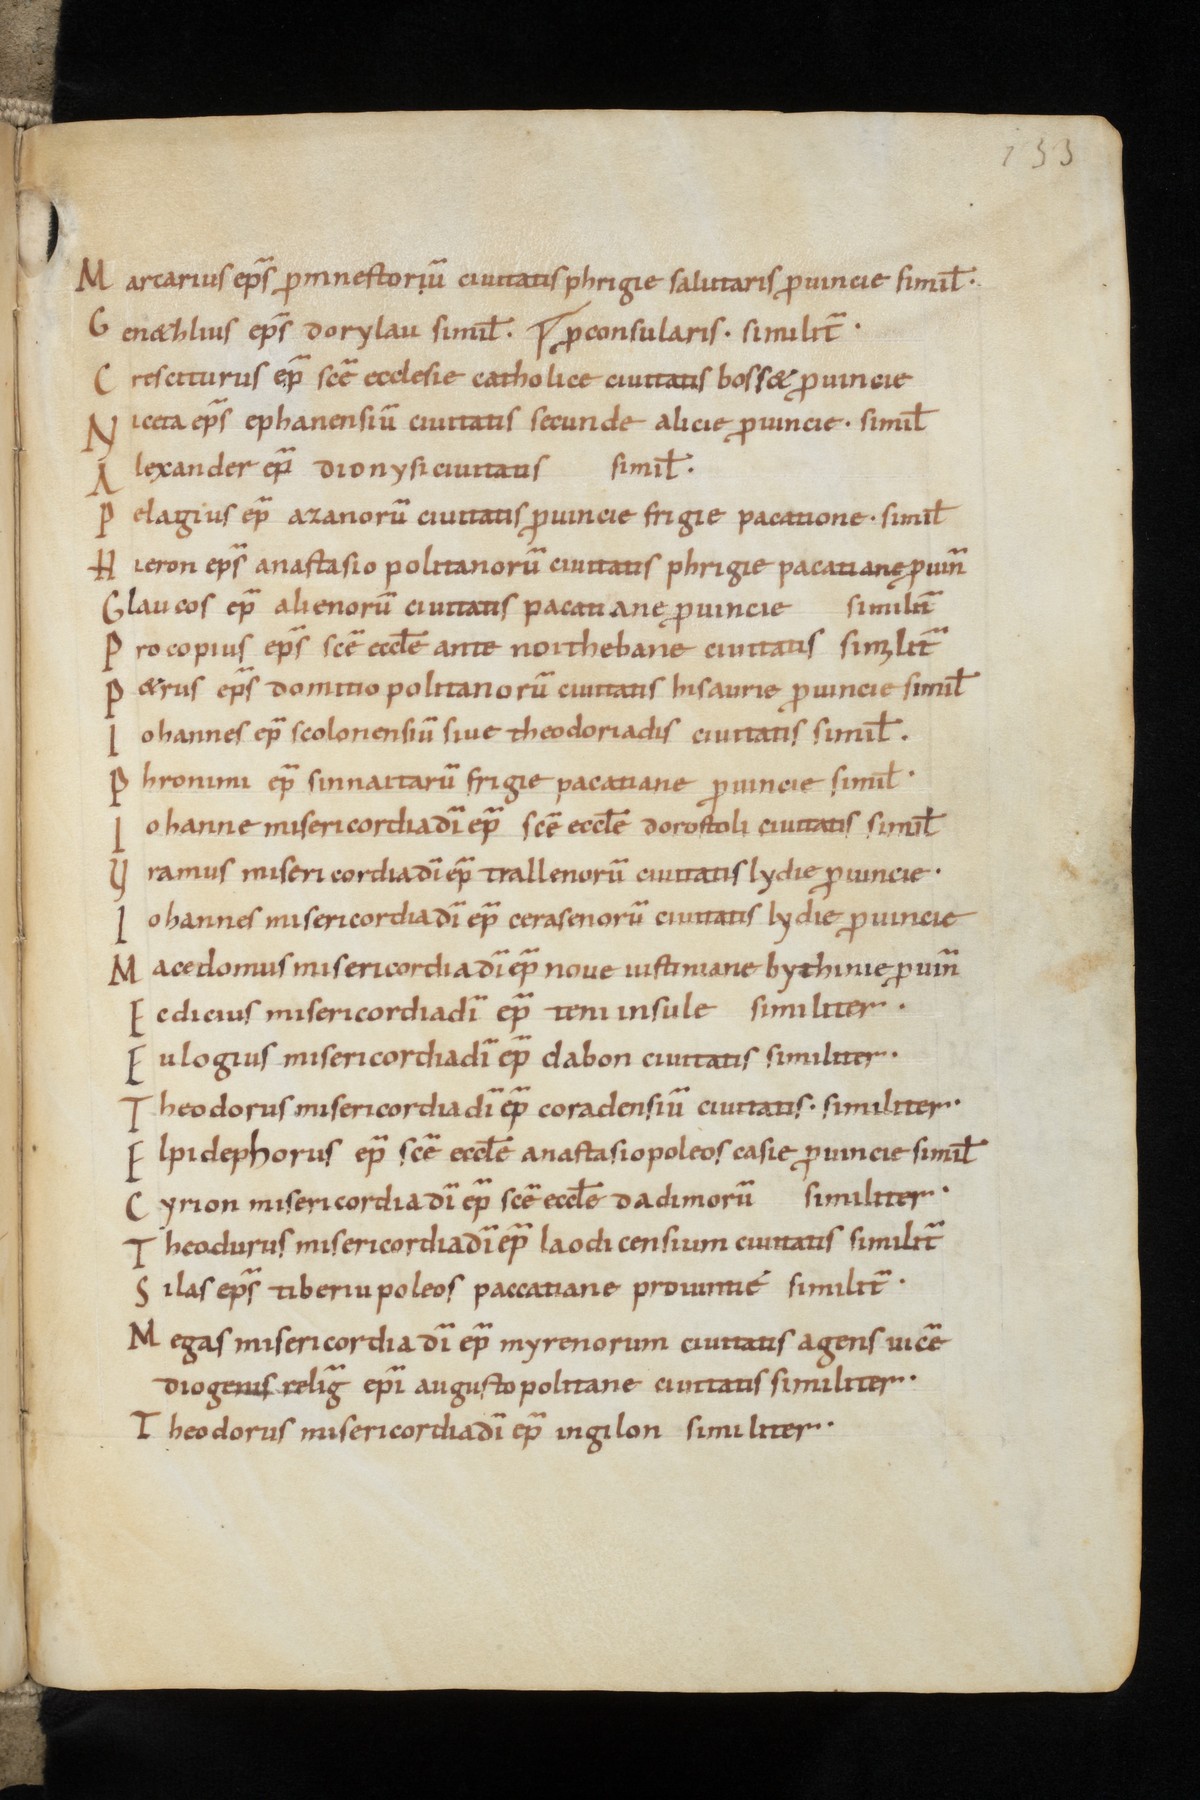 133
Marcarius ep̃s ꝓmnestoriũ ciuitatis phrigie salutaris ꝓuincie simil̃·
Genæhlius ep̃s dorylau simil̃· ꝓconsularis· similit̃·
Cresciturus ep̃ scẽ ecclesie catholice ciuitatis bossæ ꝓuincie
Niceta ep̃s ephanensiũ ciuitatis secunde alicie ꝓuincie· simil̃
Alexander ep̃ dionysi ciuitatis simil̃·
Pelagius ep̃ azanorũ ciuitatis ꝓuincie frigie pacatione· simil̃
Hieron ep̃s anastasio politanorũ ciuitatis phrigie pacatiane ꝓuiñ
Glaucos ep̃ alienorũ ciuitatis pacatiane ꝓuincie similit̃
Procopius ep̃s scẽ eccl̃e ante noithebane ciuitatis similit̃
Pærus ep̃s domitio politanorũ ciuitatis hisaurie ꝓuincie simil̃
Iohannes ep̃ scolonensiũ siue theodoriadis ciuitatis simil̃·
Phronimi ep̃ sinnaitarũ frigie pacatiane ꝓuincie simil̃·
Iohanne misericordia dĩ ep̃ scẽ eccl̃e dorostoli ciuitatis simil̃
Yramus misericordia dĩ ep̃ trallenorũ ciuitatis lydie ꝓuincie·
Iohannes misericordia dĩ ep̃ cerasenorũ ciuitatis lydie ꝓuincie
Macedomus misericordia dĩ ep̃ noue iustiniane bythinie ꝓuiñ
Ecdicius misericordia dĩ ep̃ teni insule similiter·
Eulogius misericordia dĩ ep̃ dabon ciuitatis similiter·
Theodorus misericordia dĩ ep̃ coradensiũ ciuitatis· similiter·
Elpidephorus ep̃ scẽ eccl̃e anastasiopoleos casie ꝓuincie simil̃
Cyrion misericordia dĩ ep̃ scẽ eccl̃e dadimorũ similiter·
Theodurus misericordia dĩ ep̃ laodicensium ciuitatis similit̃
Silas ep̃s tiberiupoleos paccatiane prouintie similit̃·
Megas misericordia dĩ ep̃ myrenorum ciuitatis agens uicẽ
diogenis relig̃ ep̃i augustopolitane ciuitatis similiter·
Theodorus misericordia dĩ ep̃ ingilon similiter·